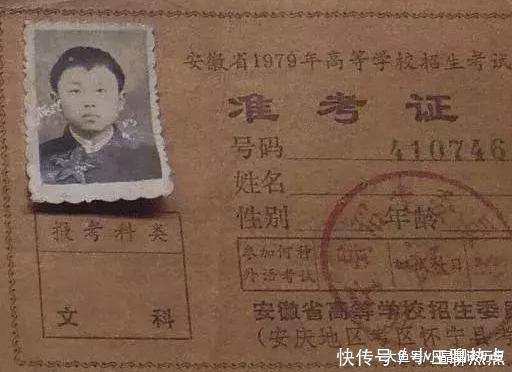 安徽省1979年高等学校招生考试
准考证
号码 410746
姓名
性别 年龄
报考科类
文科
参加何种
外语考试
安徽省高等学校招生委员
(安庆地区 怀宁县考
快传号